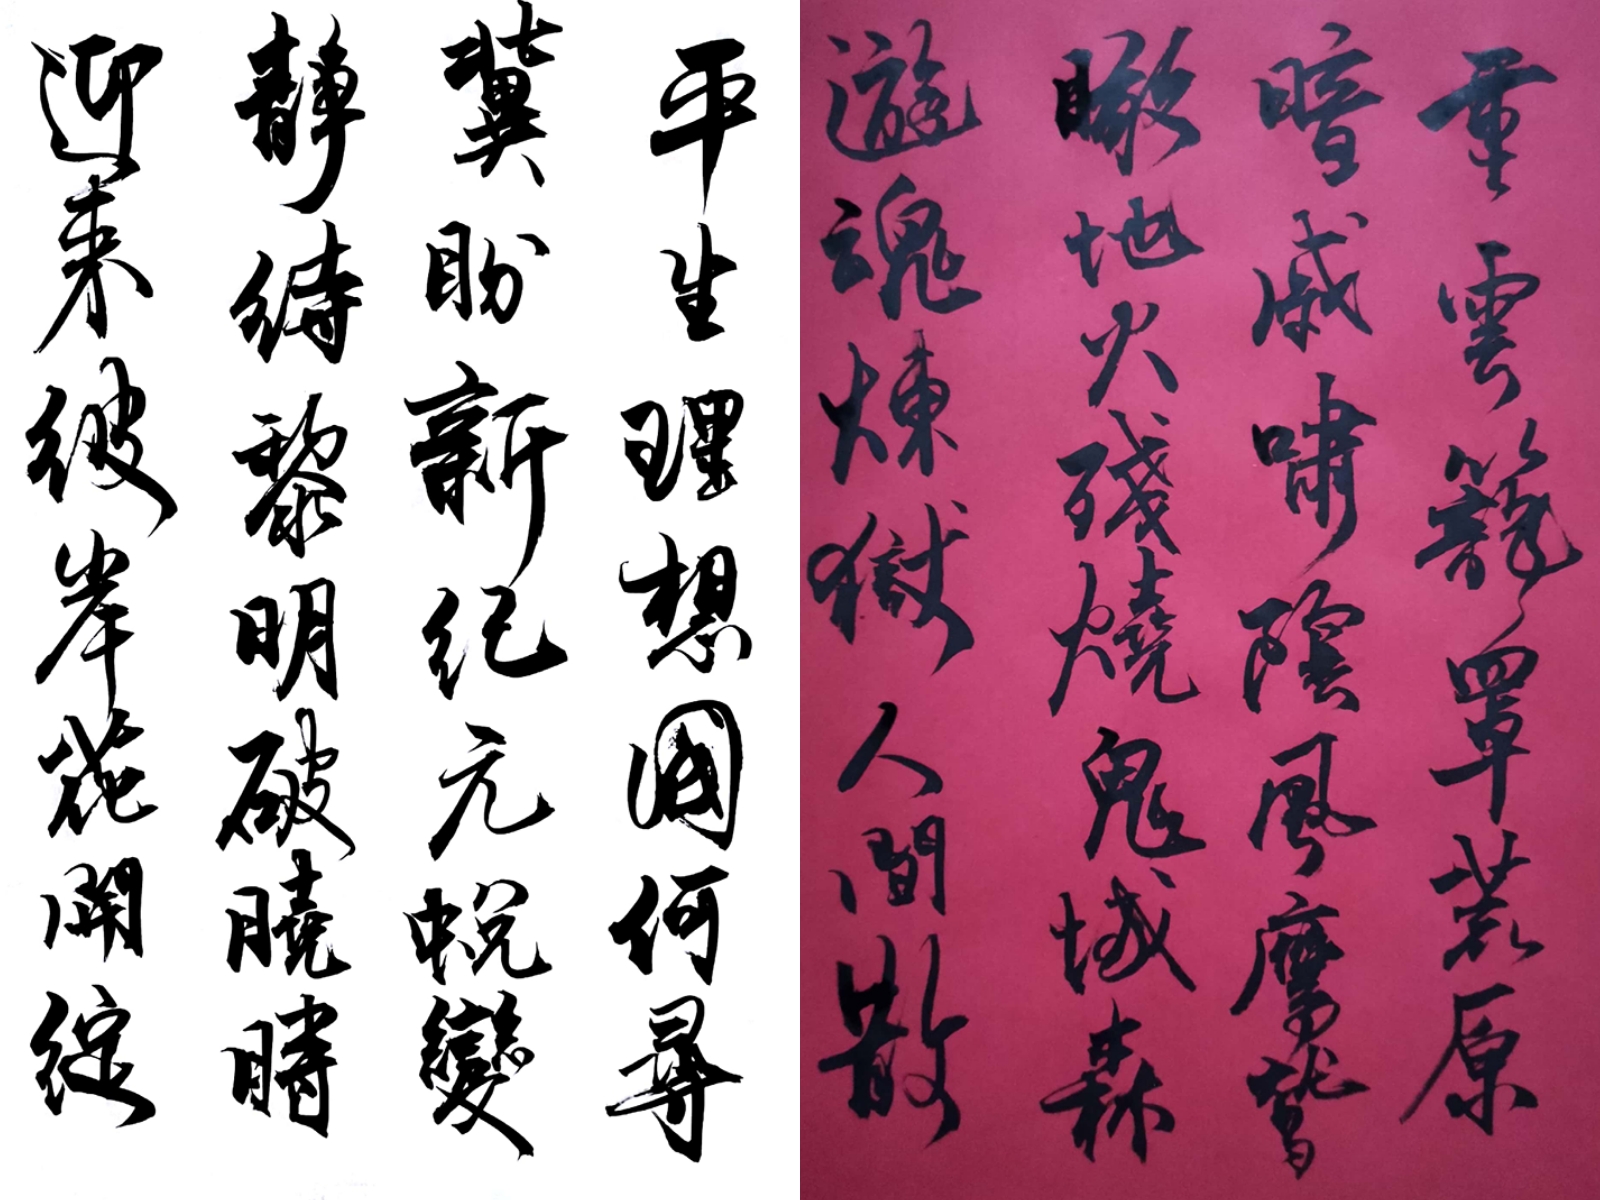 平生理想國何尋
冀盼新紀元蛻變
靜待黎明破曉時
迎來彼岸花開綻
重雲籠罩荒原
暗戚嘯陰風摩
瞰地火殘燒鬼域森
遊魂煉獄人間散